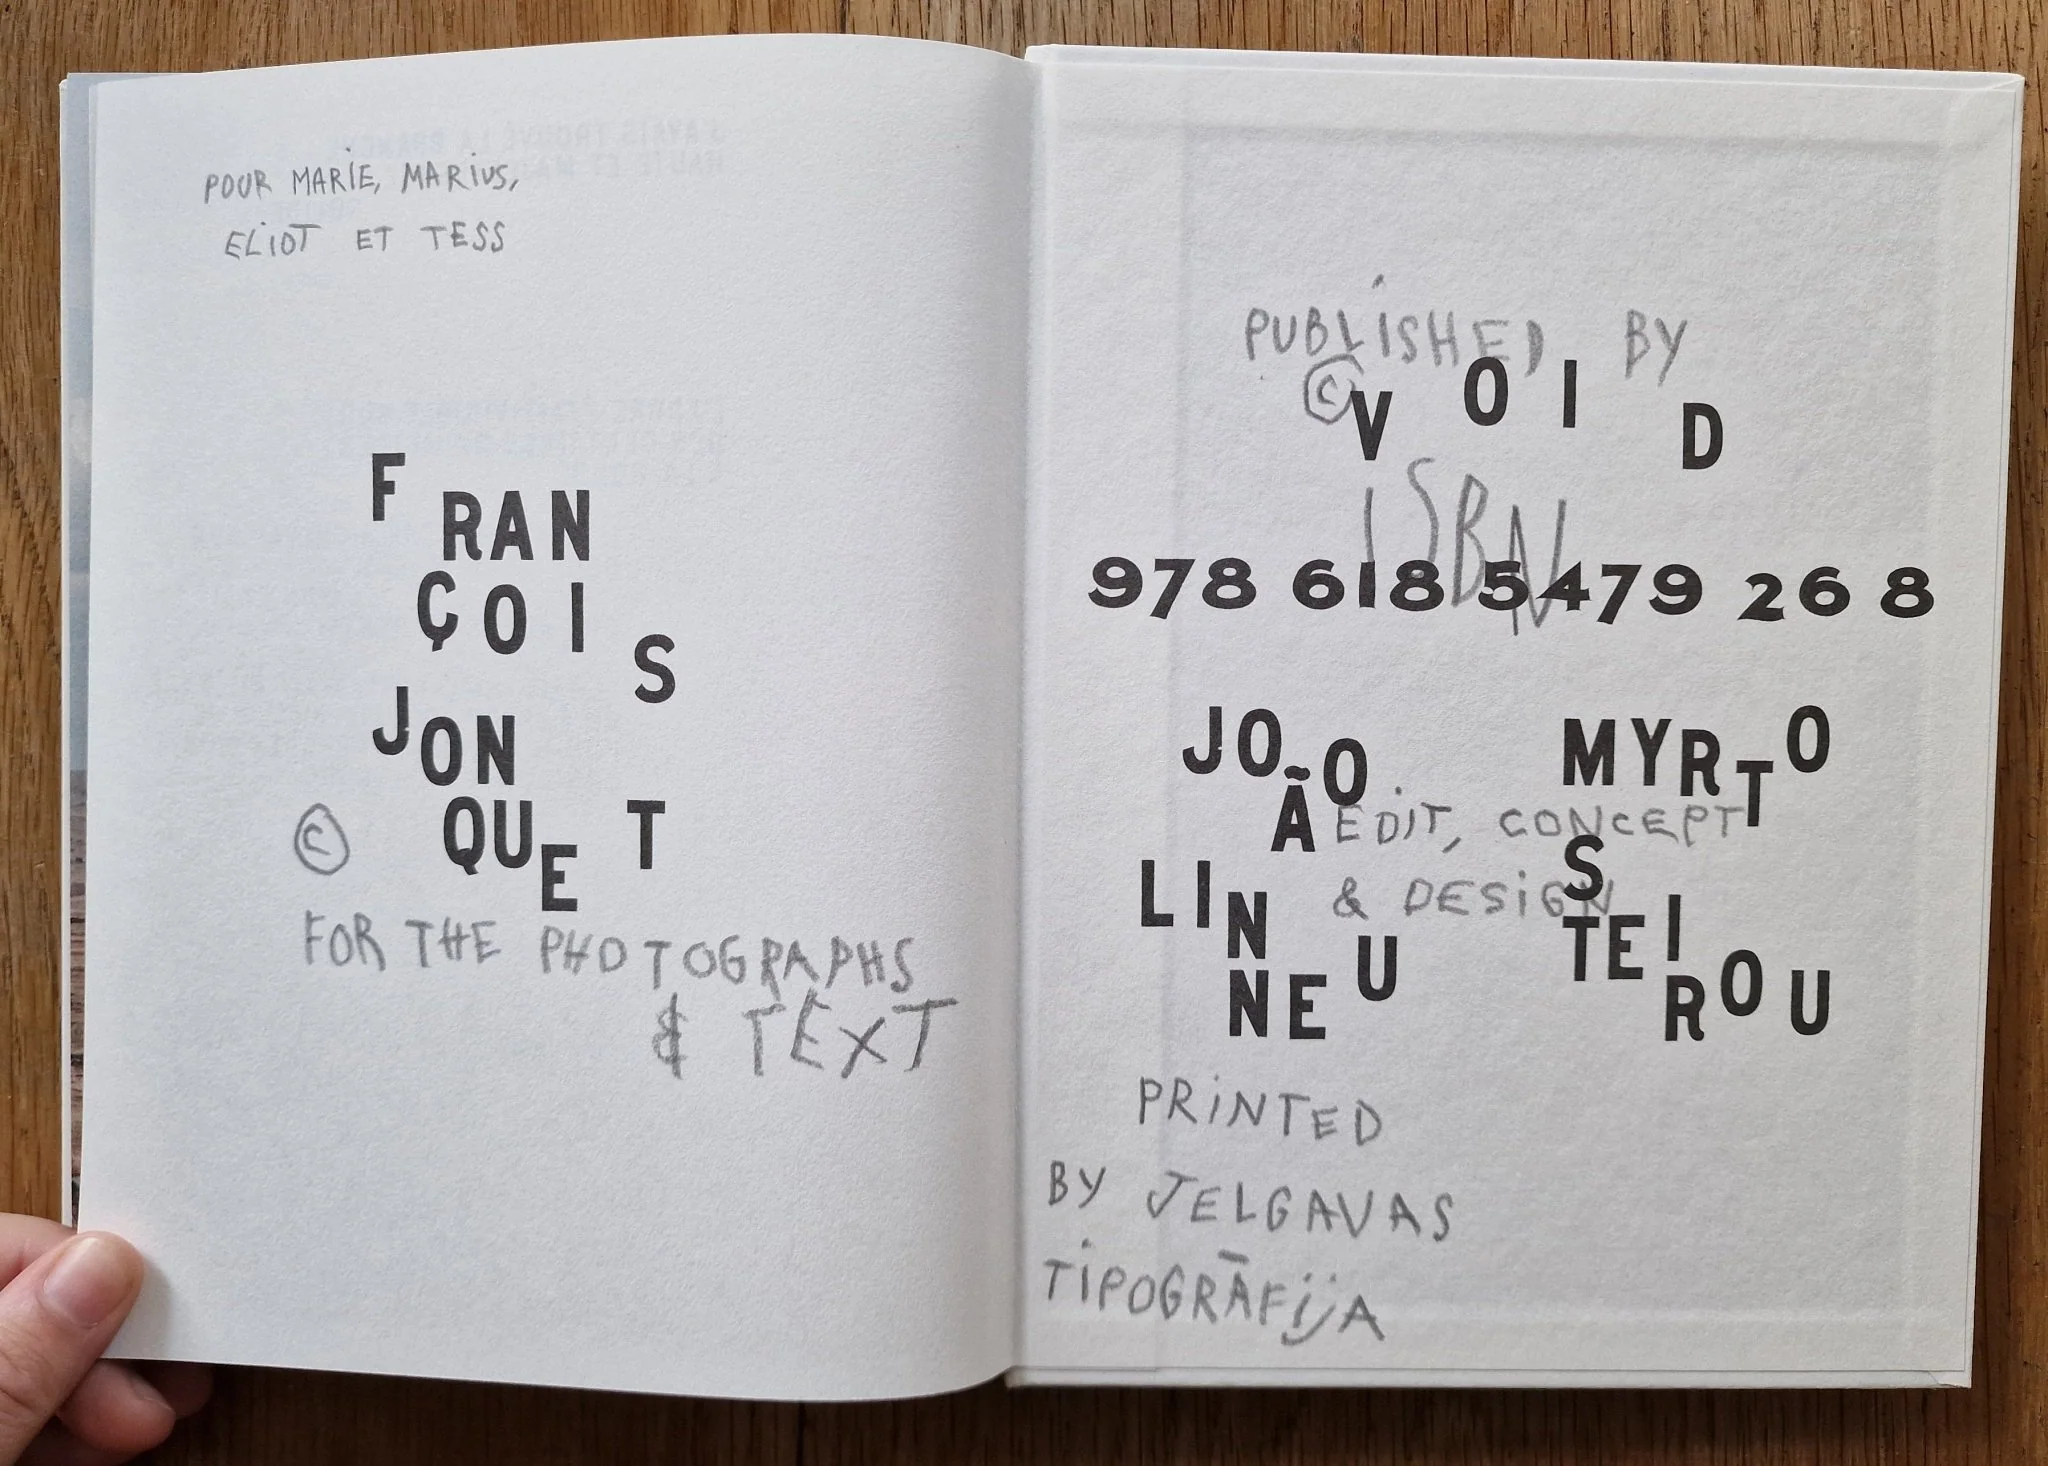 POUR MARIE, MARIUS,
ELIOT ET TESS
FRAN
ÇOIS
JON
QUET
©
FOR THE PHOTOGRAPHS
& TEXT
PUBLISHED BY
© VOID
ISBN
978 618 5479 26 8
JOÃO
LIN
NEU
MYRTO
STEIROU
EDIT, CONCEPT
& DESIGN
PRINTED
BY JELGAVAS
TIPOGRĀFIJA